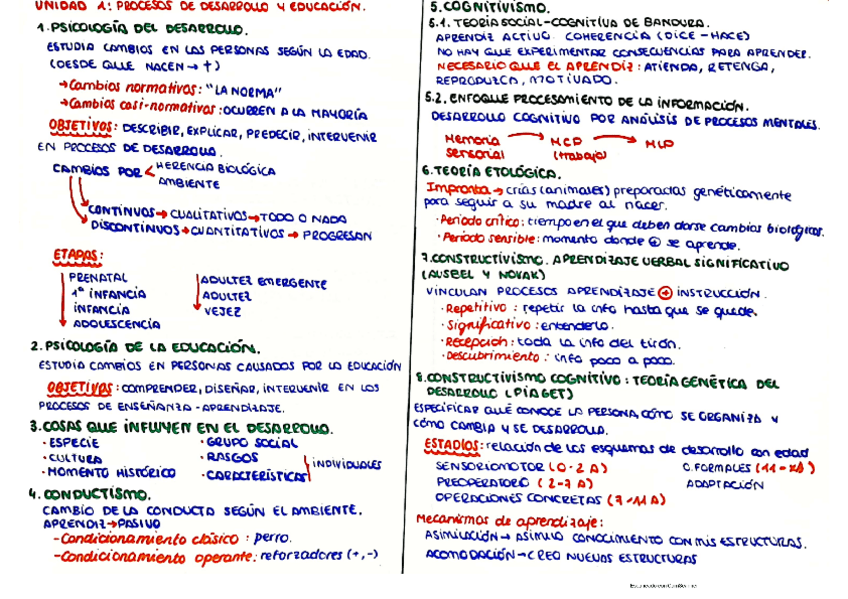 UNIDAD 1: PROCESOS DE DESARROLLO Y EDUCACIÓN.
1. PSICOLOGÍA DEL DESARROLLO.
ESTUDIA CAMBIOS EN LAS PERSONAS SEGÚN LA EDAD.
(DESDE QUE NACEN → †)
→ Cambios normativos: "LA NORMA"
→ Cambios casi-normativos: OCURREN A LA MAYORÍA
OBJETIVOS: DESCRIBIR, EXPLICAR, PREDECIR, INTERVENIR
EN PROCESOS DE DESARROLLO.
CAMBIOS POR < HERENCIA BIOLÓGICA
AMBIENTE
CONTINUOS → CUALITATIVOS → TODO O NADA
DISCONTINUOS → CUANTITATIVOS → PROGRESAN
ETAPAS:
PRENATAL
1ª INFANCIA
INFANCIA
ADOLESCENCIA
ADULTEZ EMERGENTE
ADULTEZ
VEJEZ
2. PSICOLOGÍA DE LA EDUCACIÓN.
ESTUDIA CAMBIOS EN PERSONAS CAUSADOS POR LA EDUCACIÓN
OBJETIVOS: COMPRENDER, DISEÑAR, INTERVENIR EN LOS
PROCESOS DE ENSEÑANZA - APRENDIZAJE.
3. COSAS QUE INFLUYEN EN EL DESARROLLO.
· ESPECIE
· CULTURA
· MOMENTO HISTÓRICO
· GRUPO SOCIAL
· RASGOS
· CARACTERÍSTICAS
INDIVIDUALES
4. CONDUCTISMO.
CAMBIO DE LA CONDUCTA SEGÚN EL AMBIENTE.
APRENDIZ → PASIVO
- Condicionamiento clásico: perro.
- Condicionamiento operante: reforzadores (+,-)
5. COGNITIVISMO.
5.1. TEORÍA SOCIAL-COGNITIVA DE BANDURA.
APRENDIZ ACTIVO. COHERENCIA (DICE - HACE)
NO HAY QUE EXPERIMENTAR CONSECUENCIAS PARA APRENDER.
NECESARIO QUE EL APRENDIZ: ATIENDA, RETENGA,
REPRODUZCA, MOTIVADO.
5.2. ENFOQUE PROCESAMIENTO DE LA INFORMACIÓN.
DESARROLLO COGNITIVO POR ANÁLISIS DE PROCESOS MENTALES.
Memoria sensorial → MCP (trabajo) → MLP
6. TEORÍA ETOLÓGICA.
Impronta → crías (animales) preparadas genéticamente
para seguir a su madre al nacer.
· Periodo crítico: tiempo en el que deben darse cambios biológicos.
· Periodo sensible: momento donde ⊕ se aprende.
7. CONSTRUCTIVISMO. APRENDIZAJE VERBAL SIGNIFICATIVO
(AUSBEL Y NOVAK)
VINCULAN PROCESOS APRENDIZAJE ⊕ INSTRUCCIÓN.
· Repetitivo: repetir la info hasta que se quede.
· Significativo: entenderlo.
· Recepción: toda la info del tirón.
· Descubrimiento: info poco a poco.
8. CONSTRUCTIVISMO COGNITIVO: TEORÍA GENÉTICA DEL
DESARROLLO (PIAGET)
ESPECIFICAR QUÉ CONOCE LA PERSONA, CÓMO SE ORGANIZA Y
CÓMO CAMBIA Y SE DESARROLLA.
ESTADIOS: relación de los esquemas de desarrollo con edad
SENSORIOMOTOR (0-2 A)
PREOPERATORIO (2-7 A)
OPERACIONES CONCRETAS (7-11 A)
O. FORMALES
ADAPTACIÓN
Mecanismos de aprendizaje:
ASIMILACIÓN → ASIMILO CONOCIMIENTO CON MIS ESTRUCTURAS.
ACOMODACIÓN → CREO NUEVAS ESTRUCTURAS
Escaneado con CamScanner